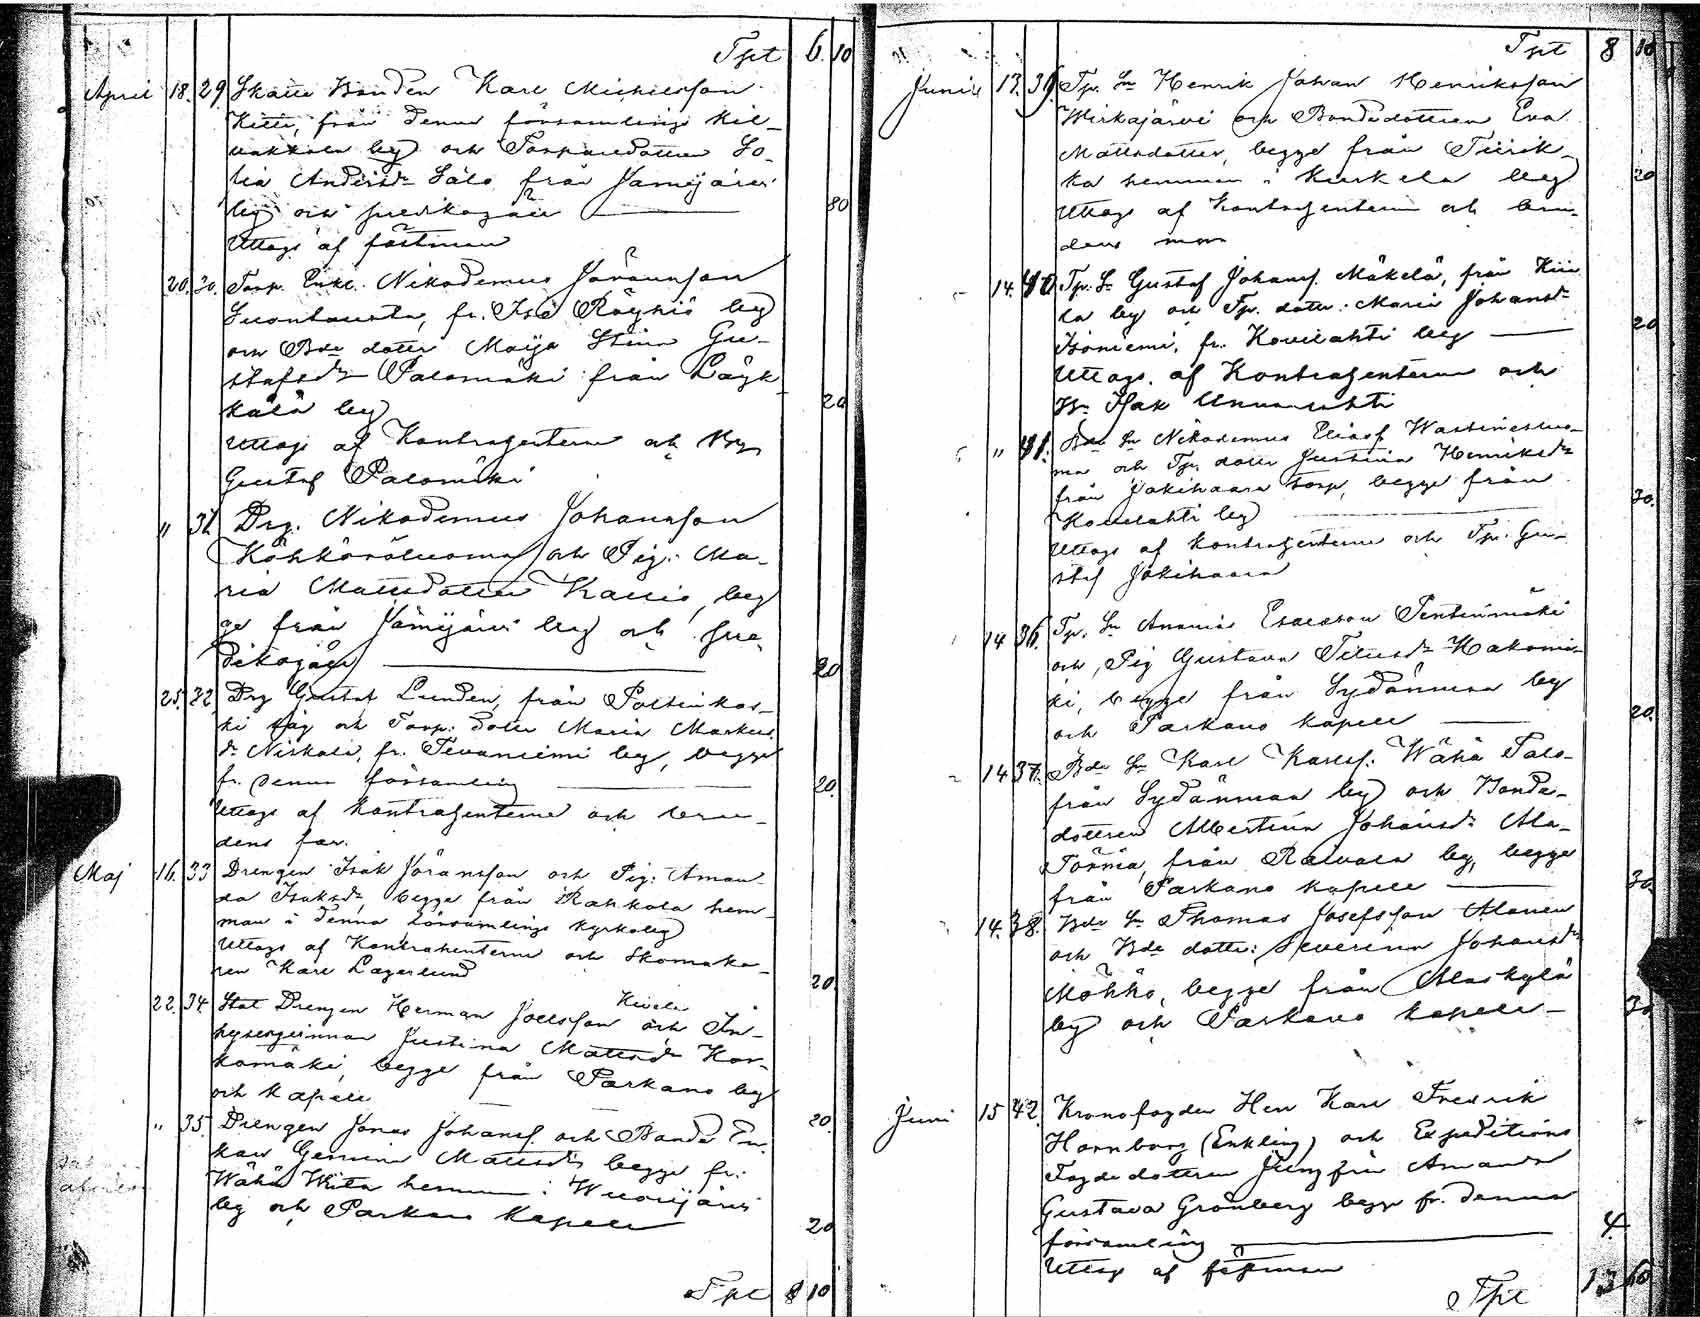 Tpt 6. 10
April 18. 29 Skatte Bonden Karl Michelsson
Kitti, från denna församlings Kil-
vakkala by och Torparedottren So-
fia Andersdr Salo från Jämijärvi
by och predikogäll 80
Uttogs af fästman
20. 30. Torp. Enkl. Nikodemus Jöransson
Luontausta, fr. Iso Röyhiö by
och Bde dotter Maija Stina Gu-
stafsdr Palomäki från Läyk-
kälä by 20
Uttogs af Kontrahenterne och
Gustaf Palomäki
" 31 Drg. Nikodemus Johansson
Köhköröluoma och Pig. Ma-
ria Mattsdotter Kallio, beg
ge från Jämijärvi by och pre-
dikogäll 20
25. 32 Drg Gustaf Lunden, från Poltinkos-
ki såg och Torp. dotter Maria Markus
dr Niskala, fr. Tevaniemi by, begge
fr. denna församling 20.
Uttogs af Kontrahenterne och bru-
dens far.
Maj 16. 33 Drengen Isak Jöransson och Pig: Aman-
da Isaksdr, begge från Rahkala hem-
man i denna församlings kyrkoby
Uttogs af Kontrahenterne och Skomaka-
ren Karl Lagerlund 20.
22. 34 Stat Drengen Herman Joelsson Kivelä och In-
hysesqvinnan Justina Mattsdr Kor-
komäki, begge från Parkano by
och kapell 20.
" 35. Drengen Jonas Johansf. och Bonde En-
kan Mattsdr begge fr.
Wähä Wuta hemman i Wuorijärvi
by och Parkano kapell 20
Tpt 8 10
Tpt 8 10
Junii 13. 39. Tp. Sn Henrik Johan Henriksson
Wirkajärvi och Bondedottren Eva
Mattsdotter, begge från Tiirik-
ka hemman i Kurkela by 20
Uttogs af Kontrahenterne och bru-
dens mor
14. 40. Tp. Sn Gustaf Johansf. Mäkelä, från Kii
la by och Tp. dotter: Maria Johansdr
Isoniemi, fr. Kovelahti by 20
Uttogs. af Kontrahenterne och
Isak
" 41. Bde Sn Nikodemus Eliasf
ma och Tp. dotter Justina Henriksdr
från Jokihaara torp, begge från
Kovelahti by 30.
Uttogs af Kontrahenterne och Tp. Gu-
staf Jokihaara
14 36. Tp. Sn Ananias Esaiasson Pentinmäki
och Pig Gustava Titusdr Hakomä-
ki, begge från Sydänmaa by
och Parkano kapell 20.
14 37. Bde Sn Karl Karlsf. Wähä Talo-
från Sydänmaa by och Bonde-
dottren Albertina Johansdr Ala-
Törmä, från Raivala by, begge
från Parkano kapell 30.
14. 38. Bde Sn Thomas Josefsson Alanen
och Bde dotter: Severina Johansdr
Möhkö, begge från Alaskylä
by och Parkano kapell 30
Juni 15 42. Kronofogden Herr Karl Fredrik
Hornborg (Enkling) och Expeditions
Fogdedottren Jungfrun Amanda
Gustava Grönberg begge fr. denna
församling 4.
Uttogs af fästman
Tpt 13 60